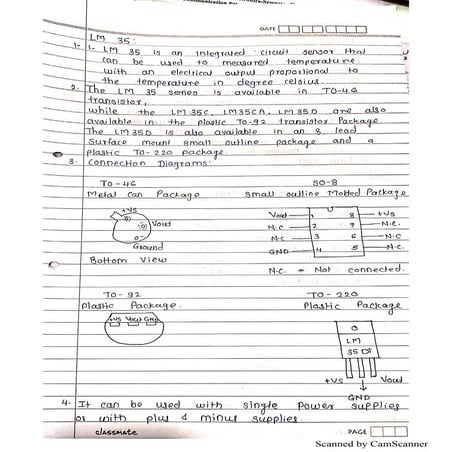 DATE
LM 35:
1- 1. LM 35 is an integrated circuit sensor that
can be used to measured temperature
with an electrical output proportional to
the temperature in degree celsius.
2. The LM 35 series is available in TO-46
transistor,
while the LM35C, LM35CA, LM35D are also
available in the plastic TO-92 transistor Package.
The LM35D is also available in an 8 lead
Surface mount small outline package and a
plastic TO-220 package.
3. Connection Diagrams:
TO-46
Metal Can Package
SO-8
Small outline Molded Package
+VS
Vout
Ground
Bottom View
Vout 1 8 +VS
N.C 2 7 N.C.
N.C 3 6 N.C
GND 4 5 N.C.
N.C. = Not connected.
TO-92
Plastic Package.
+VS Vout GND
TO-220
Plastic Package
LM
35
+VS
Vout
GND
4. It can be used with single Power supplies
or with plus & minus supplies.
classmate
PAGE
Scanned by CamScanner